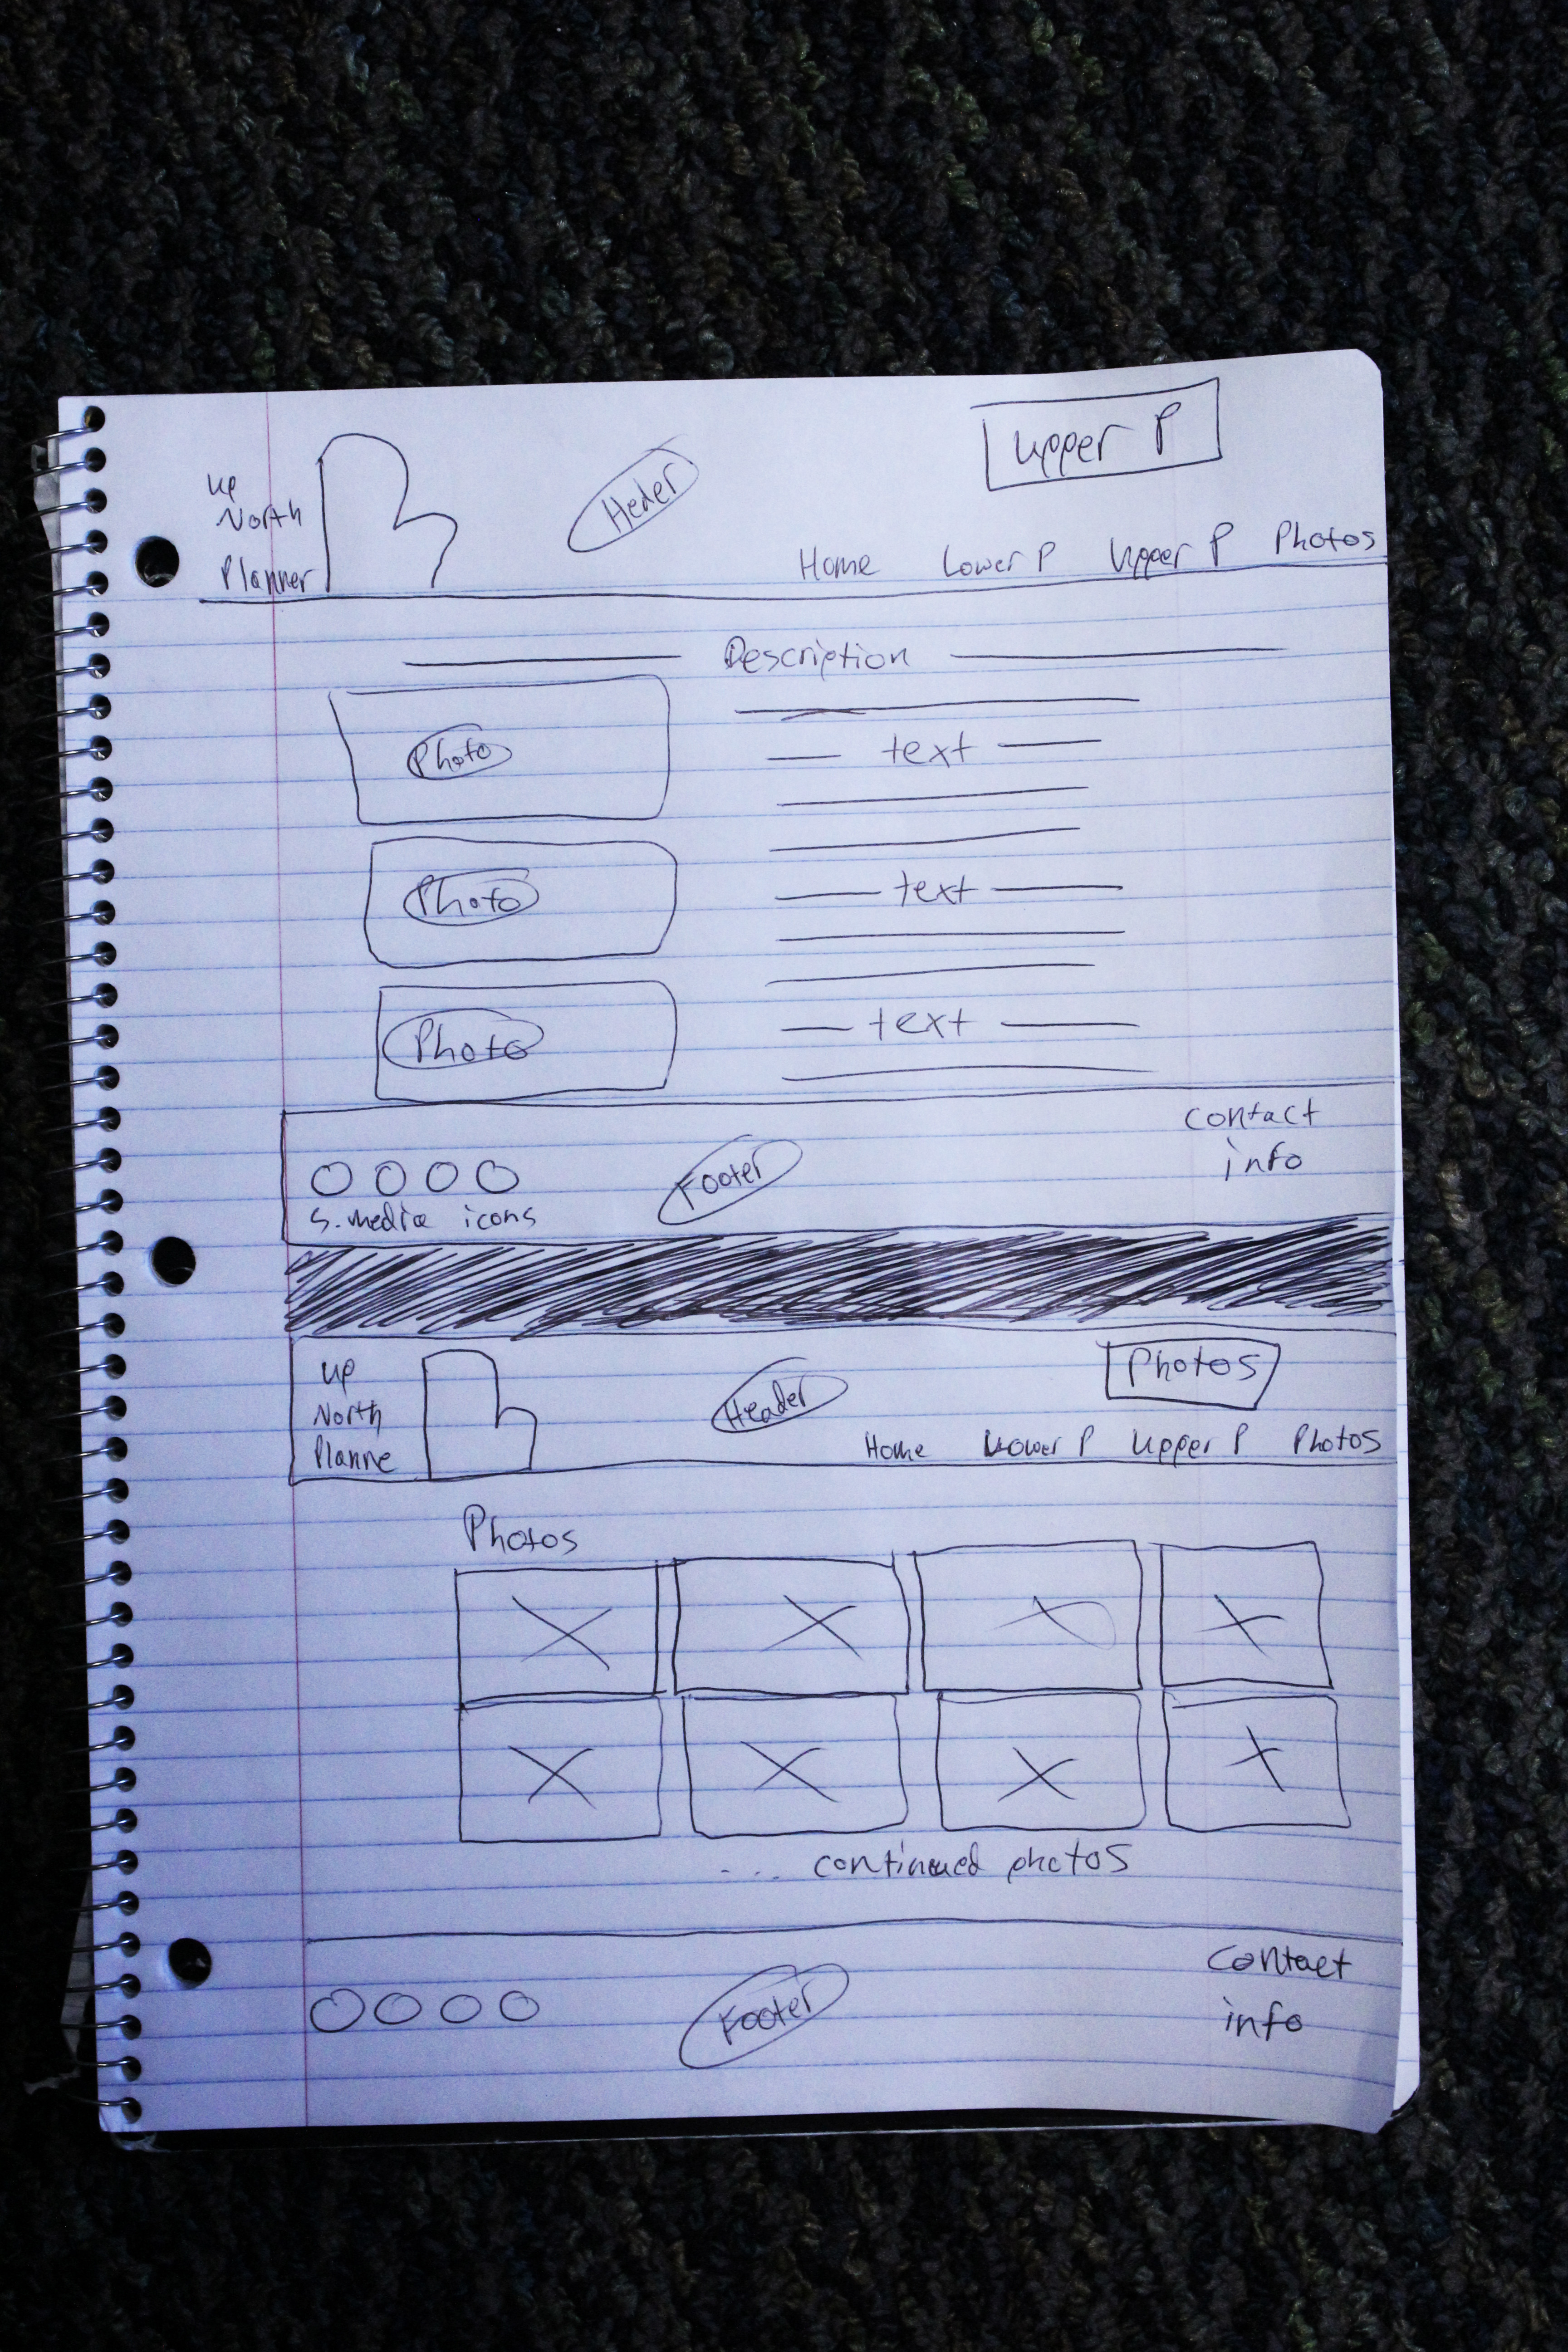 Upper P
Up
North
Planner
Heder
Home Lower P Upper P Photos
Description
Photo
text
Photo
text
Photo
text
contact
info
Footer
s.media icons
Photos
Up
North
Planne
Header
Home Lower P Upper P Photos
Photos
.... continued photos
Contact
info
Footer